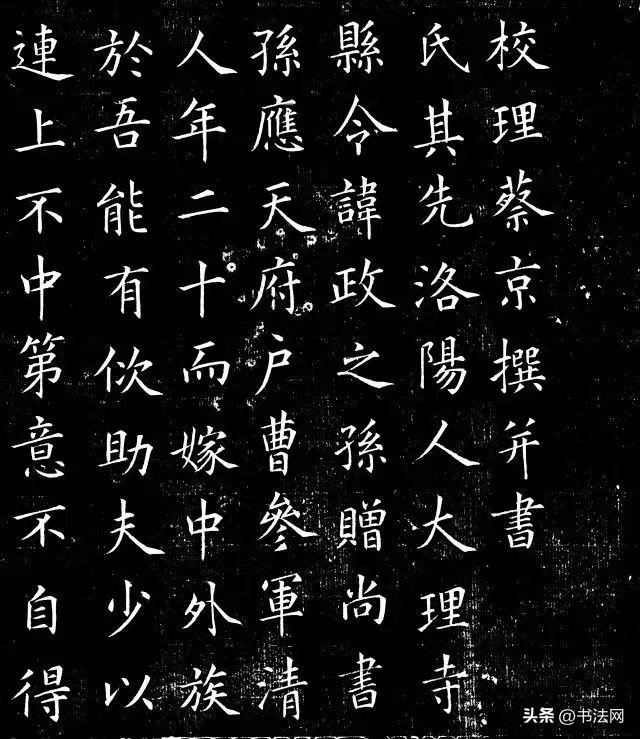 校理蔡京撰并書
氏其先洛陽人大理寺
縣令諱政之孫贈尚書
孫應天府户曹參軍清
人年二十而嫁中外族
於吾能有佽助夫少以
連上不中第意不自得
头条 @书法网